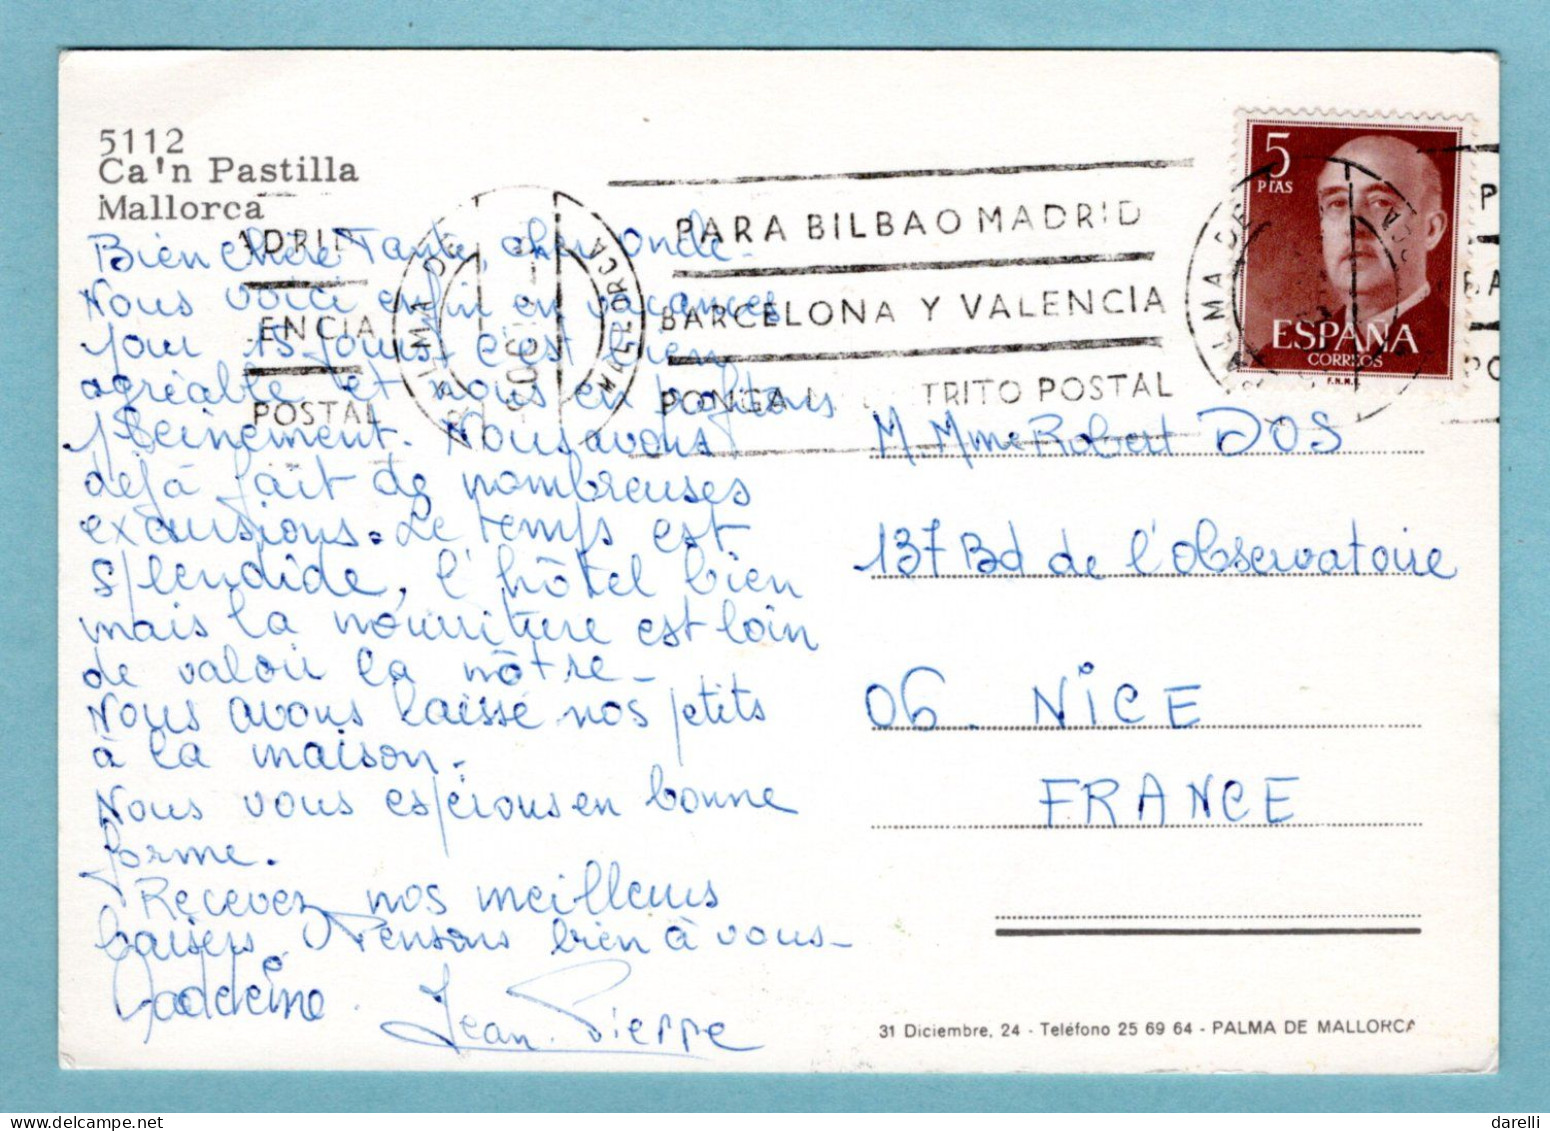 5112
Ca'n Pastilla
Mallorca
Bien chère Tante, cher oncle-
Nous voici enfin en vacances
pour 15 jours. c'est bien
agréable et nous en profitons
pleinement. Nous avons
déjà fait de nombreuses
excursions. Le temps est
splendide, l'hôtel bien
mais la nourriture est loin
de valoir la nôtre_
Nous avons laissé nos petits
à la maison.
Nous vous espérons en bonne
forme.
Recevez nos meilleurs
baisers. Pensons bien à vous_
Jean-Pierre
ADRID
ENCIA
POSTAL
PALMA DE
MALLORCA
PARA BILBAO MADRID
BARCELONA Y VALENCIA
PONGA TRITO POSTAL
5
PTAS
ESPAÑA
CORREOS
F.N.M.T.
PALMA DE
P
BA
PO
M. Mme Robert DOS
137 Bd de l'observatoire
06- NICE
FRANCE
31 Diciembre, 24 - Teléfono 25 69 64 - PALMA DE MALLORCA
darelli